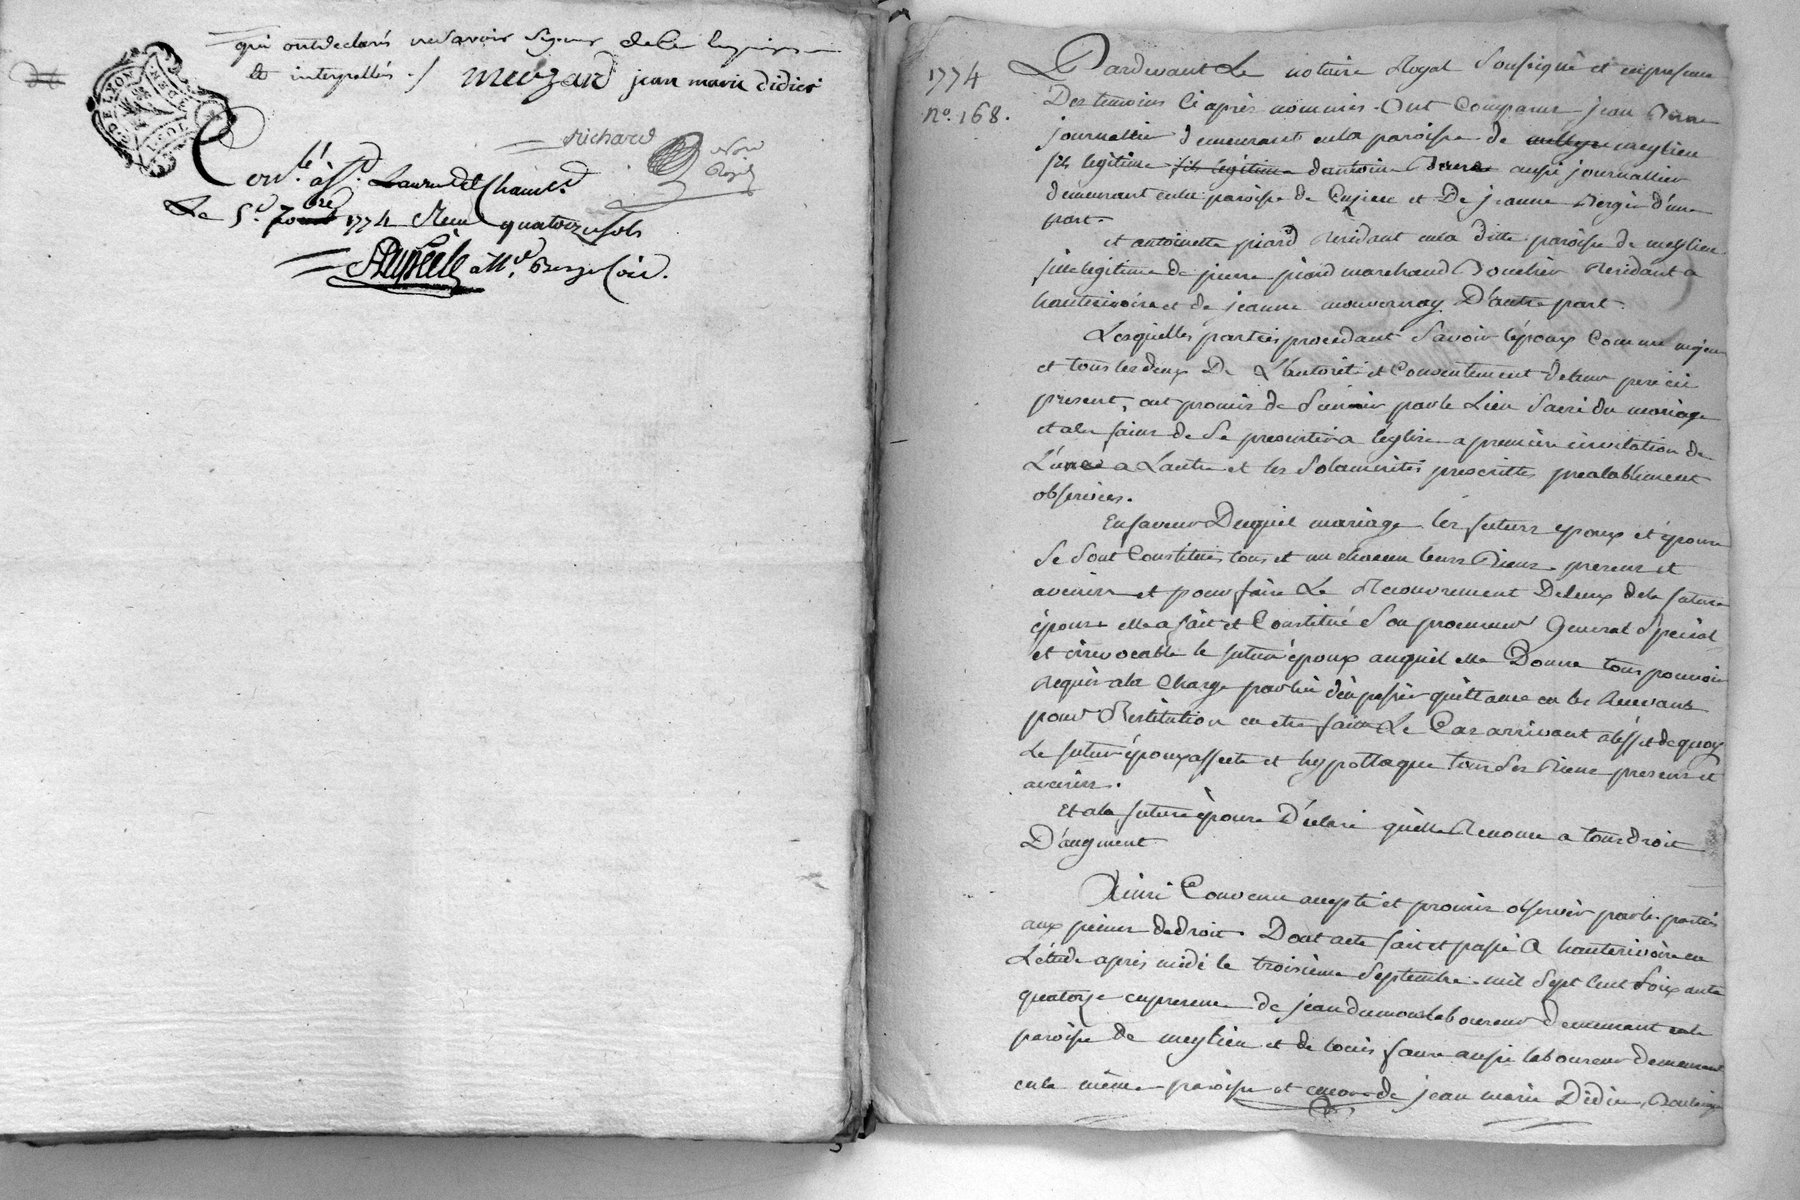 qui ont déclarés ne savoir signer de ce enquis
et interpellés ./ meuzard jean marie didier
DE LYON
GENER
Richard
Not
Roy
Con.lé à S.t Laurent Cham.t
Le 5.e 7bre 1774 Reçu quatorze sols
1774
N.o 168.
Pardevant Le notaire Royal Soussigné et en presence
Des temoins Ci après nommés. Ont Comparus jean
journallier demeurant en la paroisse de meylieu
fils legitime fils legitime d'antoine aussi journallier
demeurant en la paroisse de Cuzieu et De jeanne d'une
part.
et antoinette piard Residant en la ditte paroisse de meylieu
fille legitime de pierre piard marchand Boucher Residant a
hauterivoire et de jeanne D'autre part.
Lesquelles parties procedant Savoir l'époux Comme majeur
et tous les deux De L'autorité et Consentement de leur pere ici
present, ont promis de S'unir par le Lien Sacré du mariage
et a la fains de Se presenter a l'eglise a premiere invitation de
L'une a L'autre et les Solamnités prescrittes prealablement
observées.
En faveur Duquel mariage les futurs epoux et épouse
Se Sont Constitués tous et un chacun leurs Biens presens et
avenirs et pour faire Le Recouvrement De Ceux de la future
épouse elle a fait et Constitué Son procureur General Special
et irrevocable le futur époux auquel elle Donne tous pouvoir
Requis a la Charge par lui d'en passer quittance en les Recevant
pour Restitution en etre faitte Le Cas arrivant a l'effet de quoy
Le futur époux affecte et hypottaque tous Ses Biens presens et
avenirs.
Et a la future épouse Déclaré qu'elle Renonce a tous droit
D'augment
Ainsi Convenu accepté et promis observer par les parties
aux peines de droit. Dont acte fait et passé A hauterivoire en
L'étude après midi le troisième Septembre mil Sept Cent Soixante
quatorze en presence de jean dumas laboureur demeurant en la
paroisse de meylieu et de louis faure aussi laboureur demeurant
en la même paroisse et encore de jean marie Didier, Boulanger